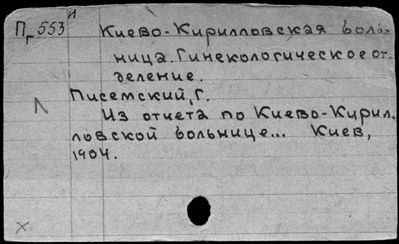 Пг 553 и
Киево-Кирилловская боль-
ница. Гинекологическое от-
деление.
Писемский, Г.
Из отчета по Киево-Кирил-
ловской больнице... Киев,
1904.